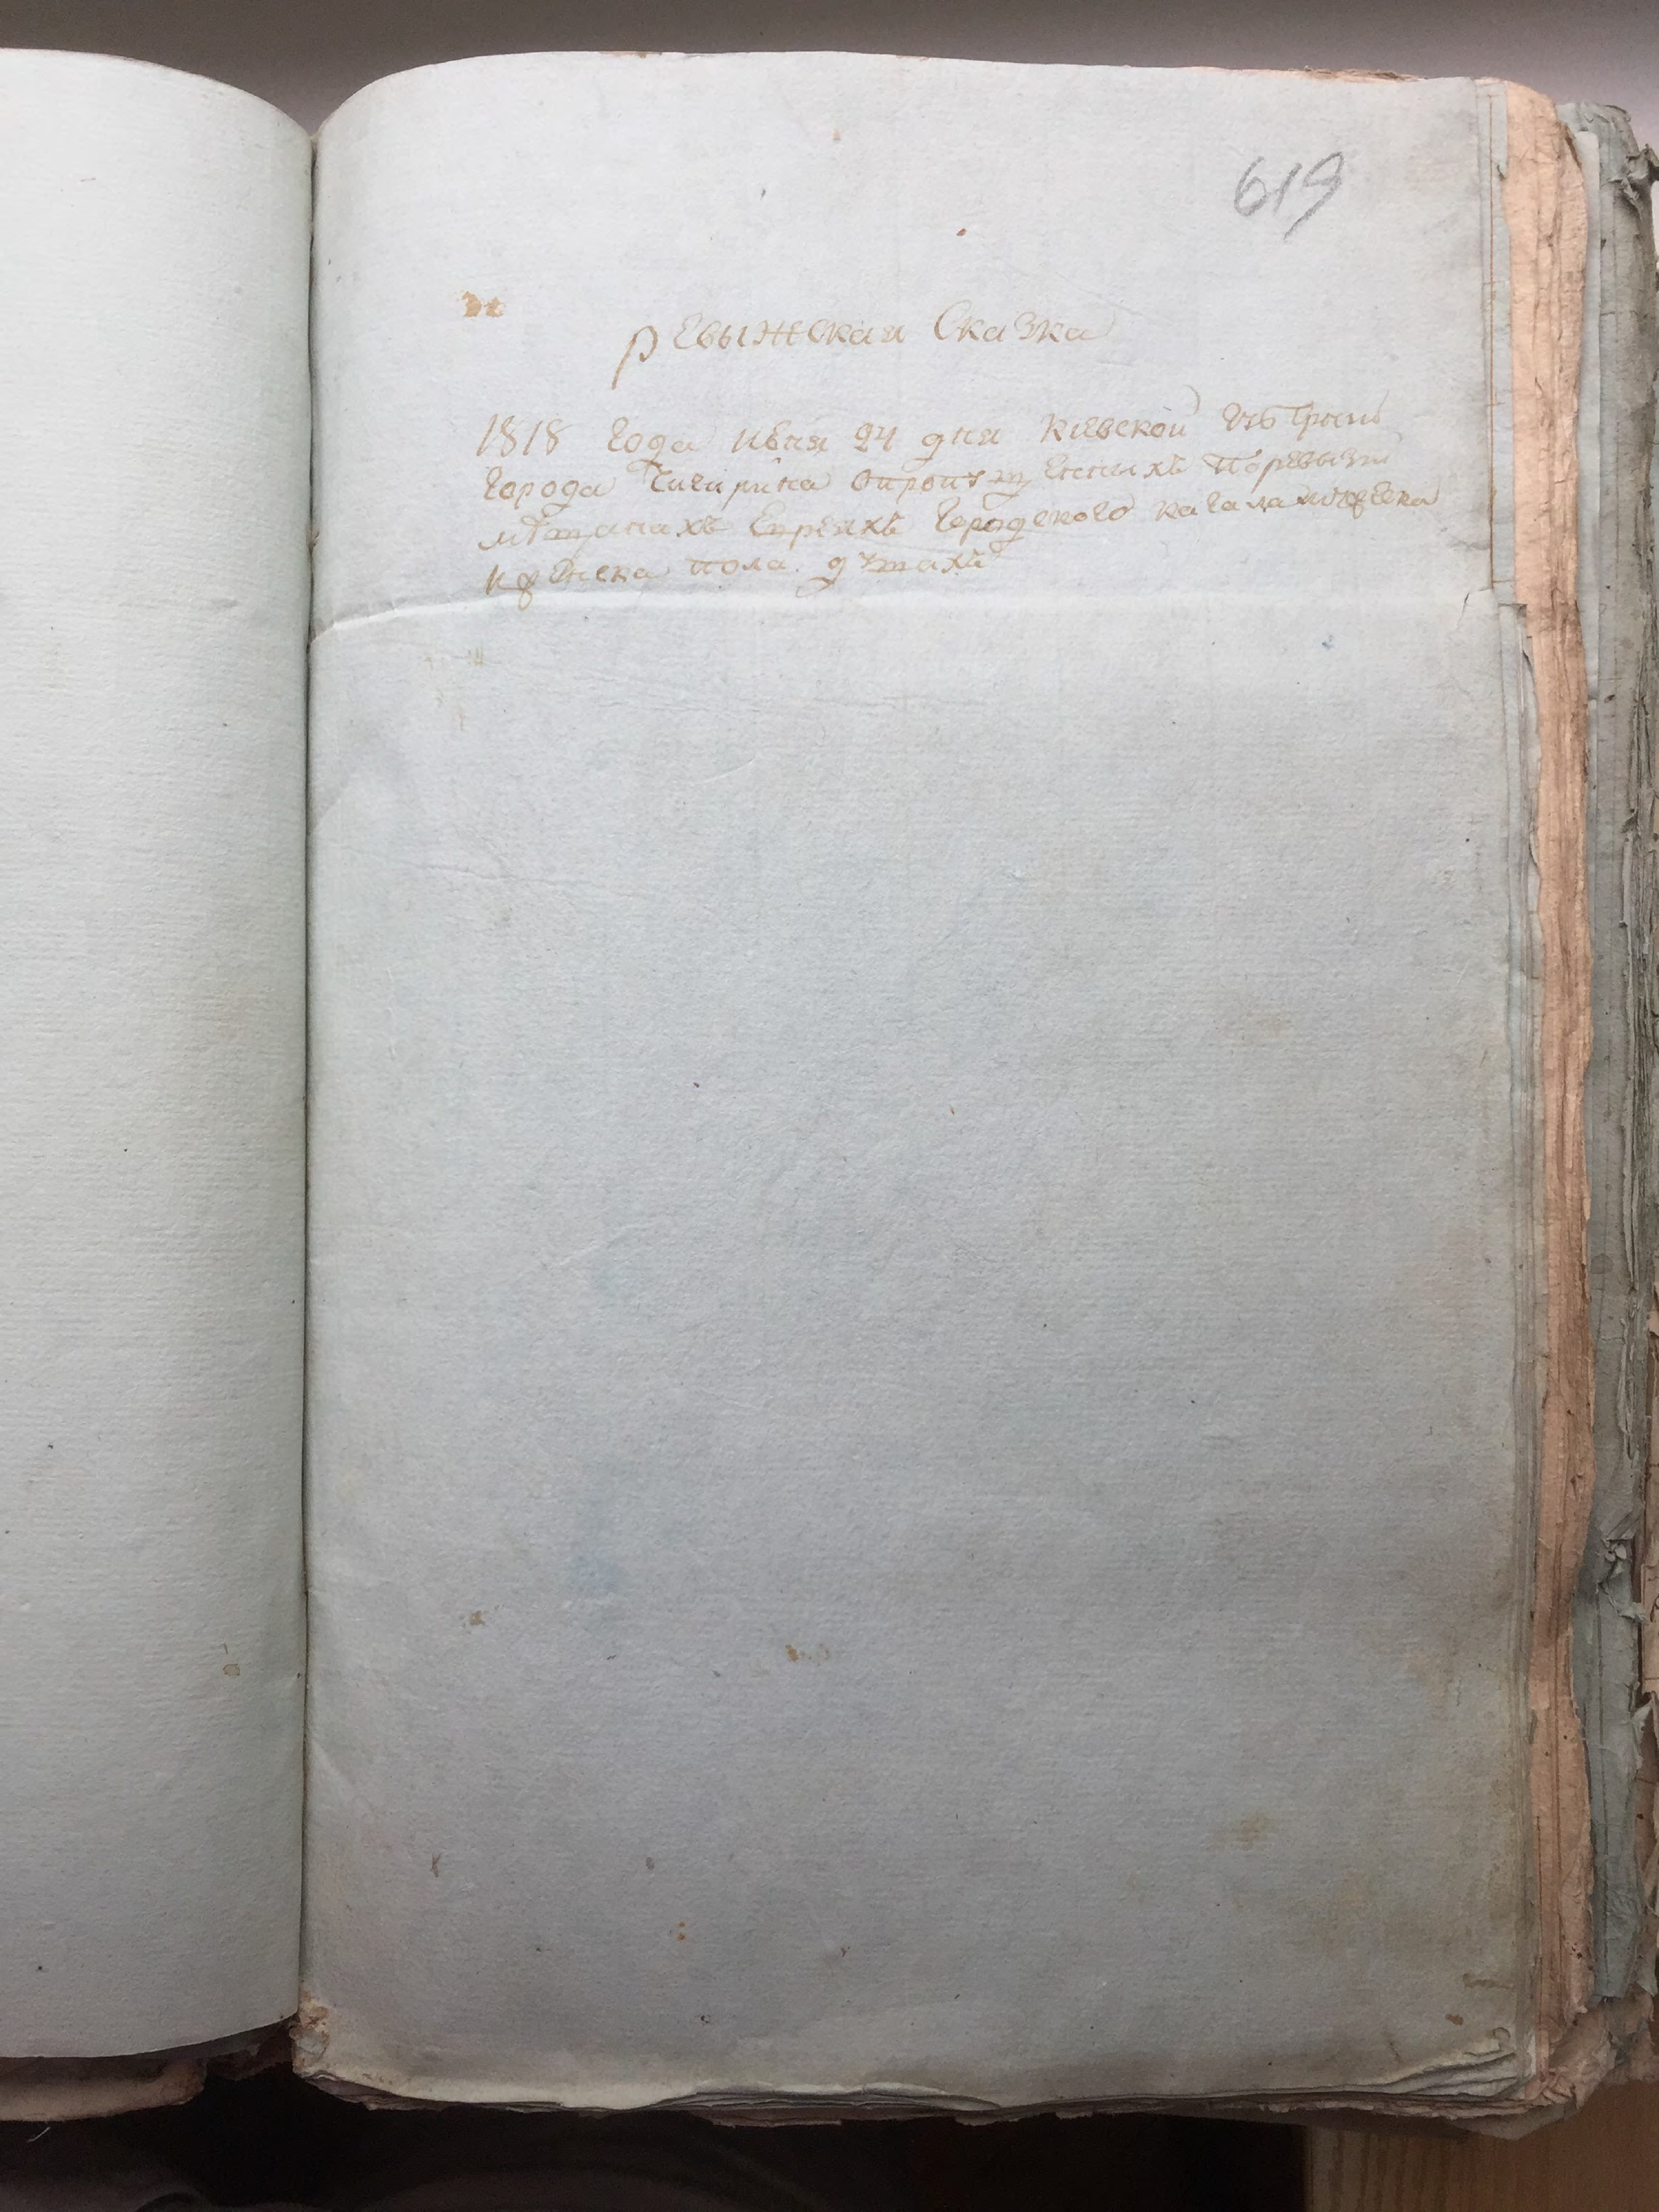 619
ревыжская Сказка
1818 года июня 24 дня киевской губерни
города Чигирина опропущенныхъ поревызи
мѣщанахъ Евреяхъ городского кагала мужеска
и женска пола душахъ